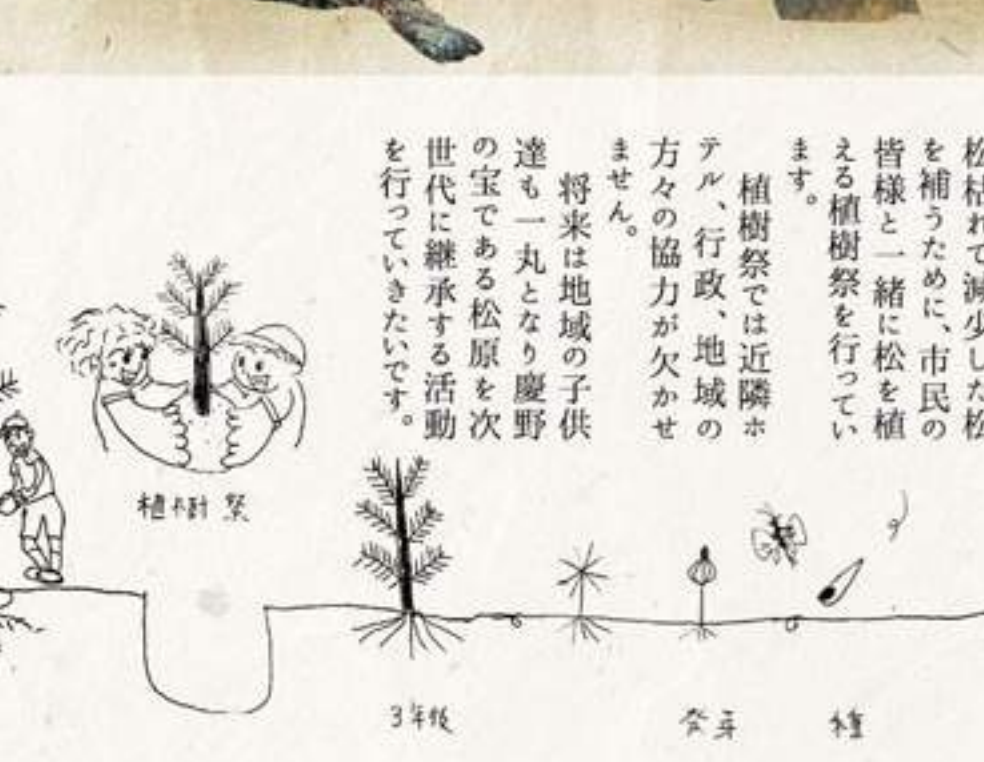 松枯れて減少した松
を補うために、市民の
皆様と一緒に松を植
える植樹祭を行ってい
ます。
植樹祭では近隣ホ
テル、行政、地域の
方々の協力が欠かせ
ません。
将来は地域の子供
達も一丸となり慶野
の宝である松原を次
世代に継承する活動
を行っていきたいです。
種
発芽
3年後
植樹祭